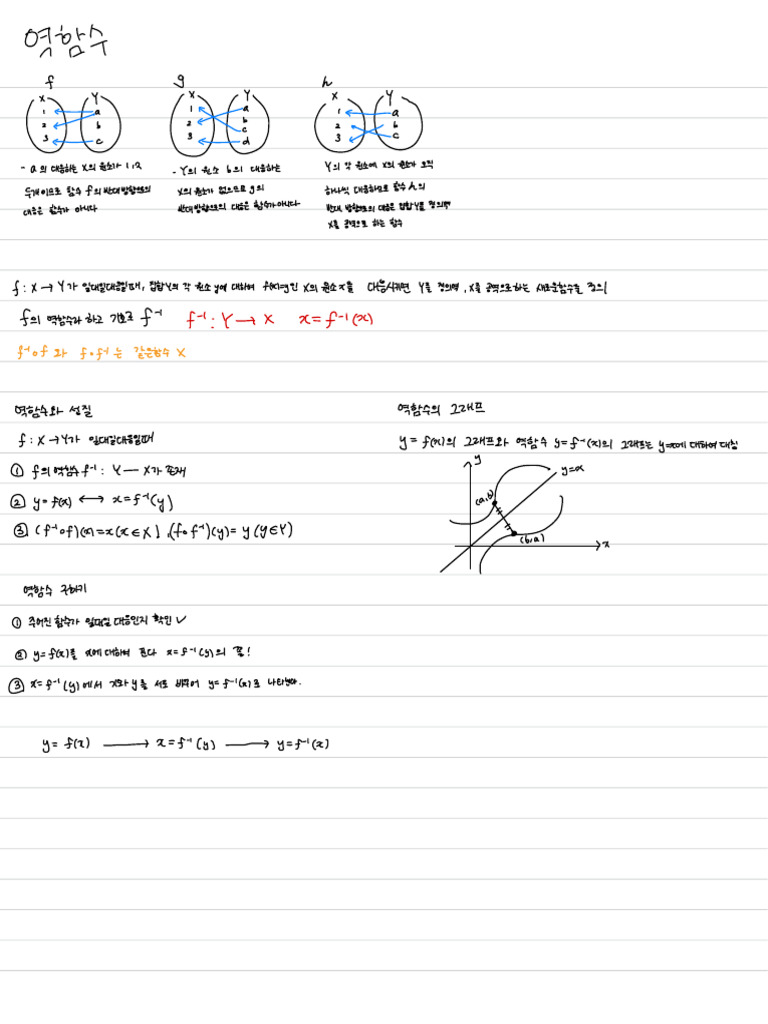 역함수
f g h
X Y X Y X Y
1 a 1 a 1 a
2 b 2 b 2 b
3 c 3 c 3 c
d
- a의 대응하는 X의 원소가 1, 2
두개이므로 함수 f의 반대방향으로의
대응은 함수가 아니다
- Y의 원소 b의 대응하는
X의 원소가 없으므로 g의
반대방향으로의 대응은 함수가 아니다
Y의 각 원소에 X의 원소가 오직
하나씩 대응하므로 함수 h의
반대 방향으로의 대응은 집합 Y를 정의역
X를 공역으로 하는 함수
f : X → Y가 일대일대응일때, 집합 Y의 각 원소 y에 대하여 f(x)=y인 X의 원소 x를 대응시키면 Y를 정의역, X를 공역으로하는 새로운함수를 정의
f의 역함수라 하고 기호로 f⁻¹ f⁻¹ : Y → X x = f⁻¹(x)
f⁻¹∘f 와 f∘f⁻¹는 같은함수 X
역함수와 성질
f : X → Y가 일대일대응일때
① f의 역함수 f⁻¹ : Y — X가 존재
② y = f(x) ⟷ x = f⁻¹(y)
③ (f⁻¹∘f)(x)=x(x∈X), (f∘f⁻¹)(y)= y (y∈Y)
역함수의 그래프
y = f(x)의 그래프와 역함수 y=f⁻¹(x)의 그래프는 y=x에 대하여 대칭
y
y=x
(a,b)
(b,a)
x
역함수 구하기
① 주어진 함수가 일대일 대응인지 확인 ✓
② y= f(x)를 x에 대하여 푼다 x= f⁻¹(y)의 꼴!
③ x= f⁻¹(y)에서 x와 y를 서로 바꾸어 y= f⁻¹(x)로 나타낸다.
y= f(x) ⟶ x = f⁻¹(y) ⟶ y=f⁻¹(x)